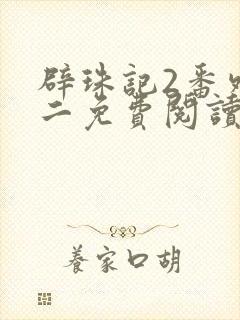 辟珠記2番
二免費閱讀
養家口胡